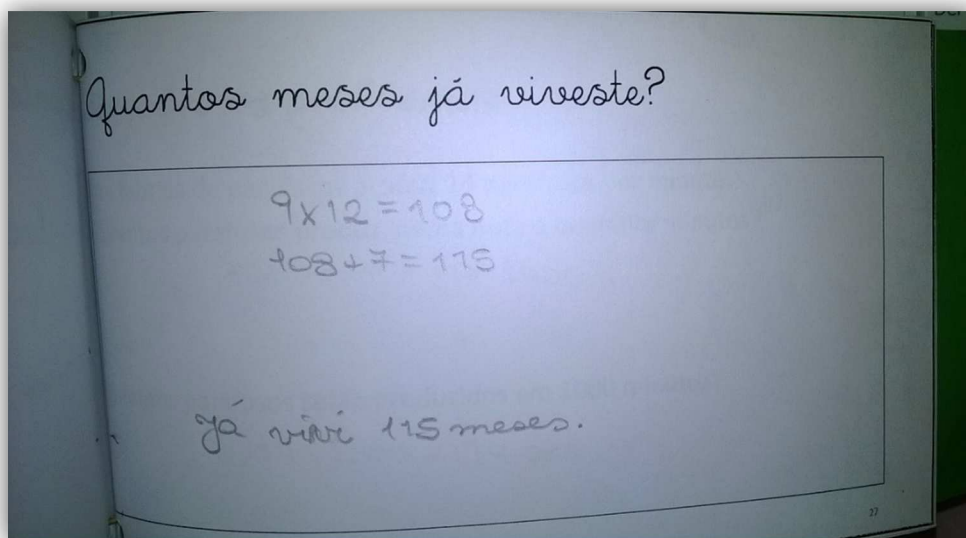 Quantos meses já viveste?
9x12=108
108+7=115
Já vivi 115 meses.
27